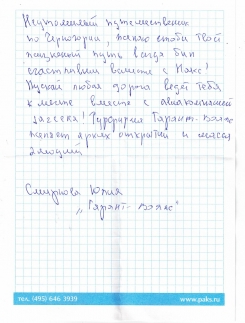 Неутомимый путешественник
по Черногории, желаю чтобы твой
жизненный путь всегда был
счастливым вместе с Пакс!
Пускай любая дорога ведет тебя
к мечте вместе с авиакомпанией
! Турфирма Гарант-Вояж
желает ярких открытий и
эмоций
Смирнова Юлия
"Гарант-Вояж"
тел. (495) 646 3939
www.paks.ru